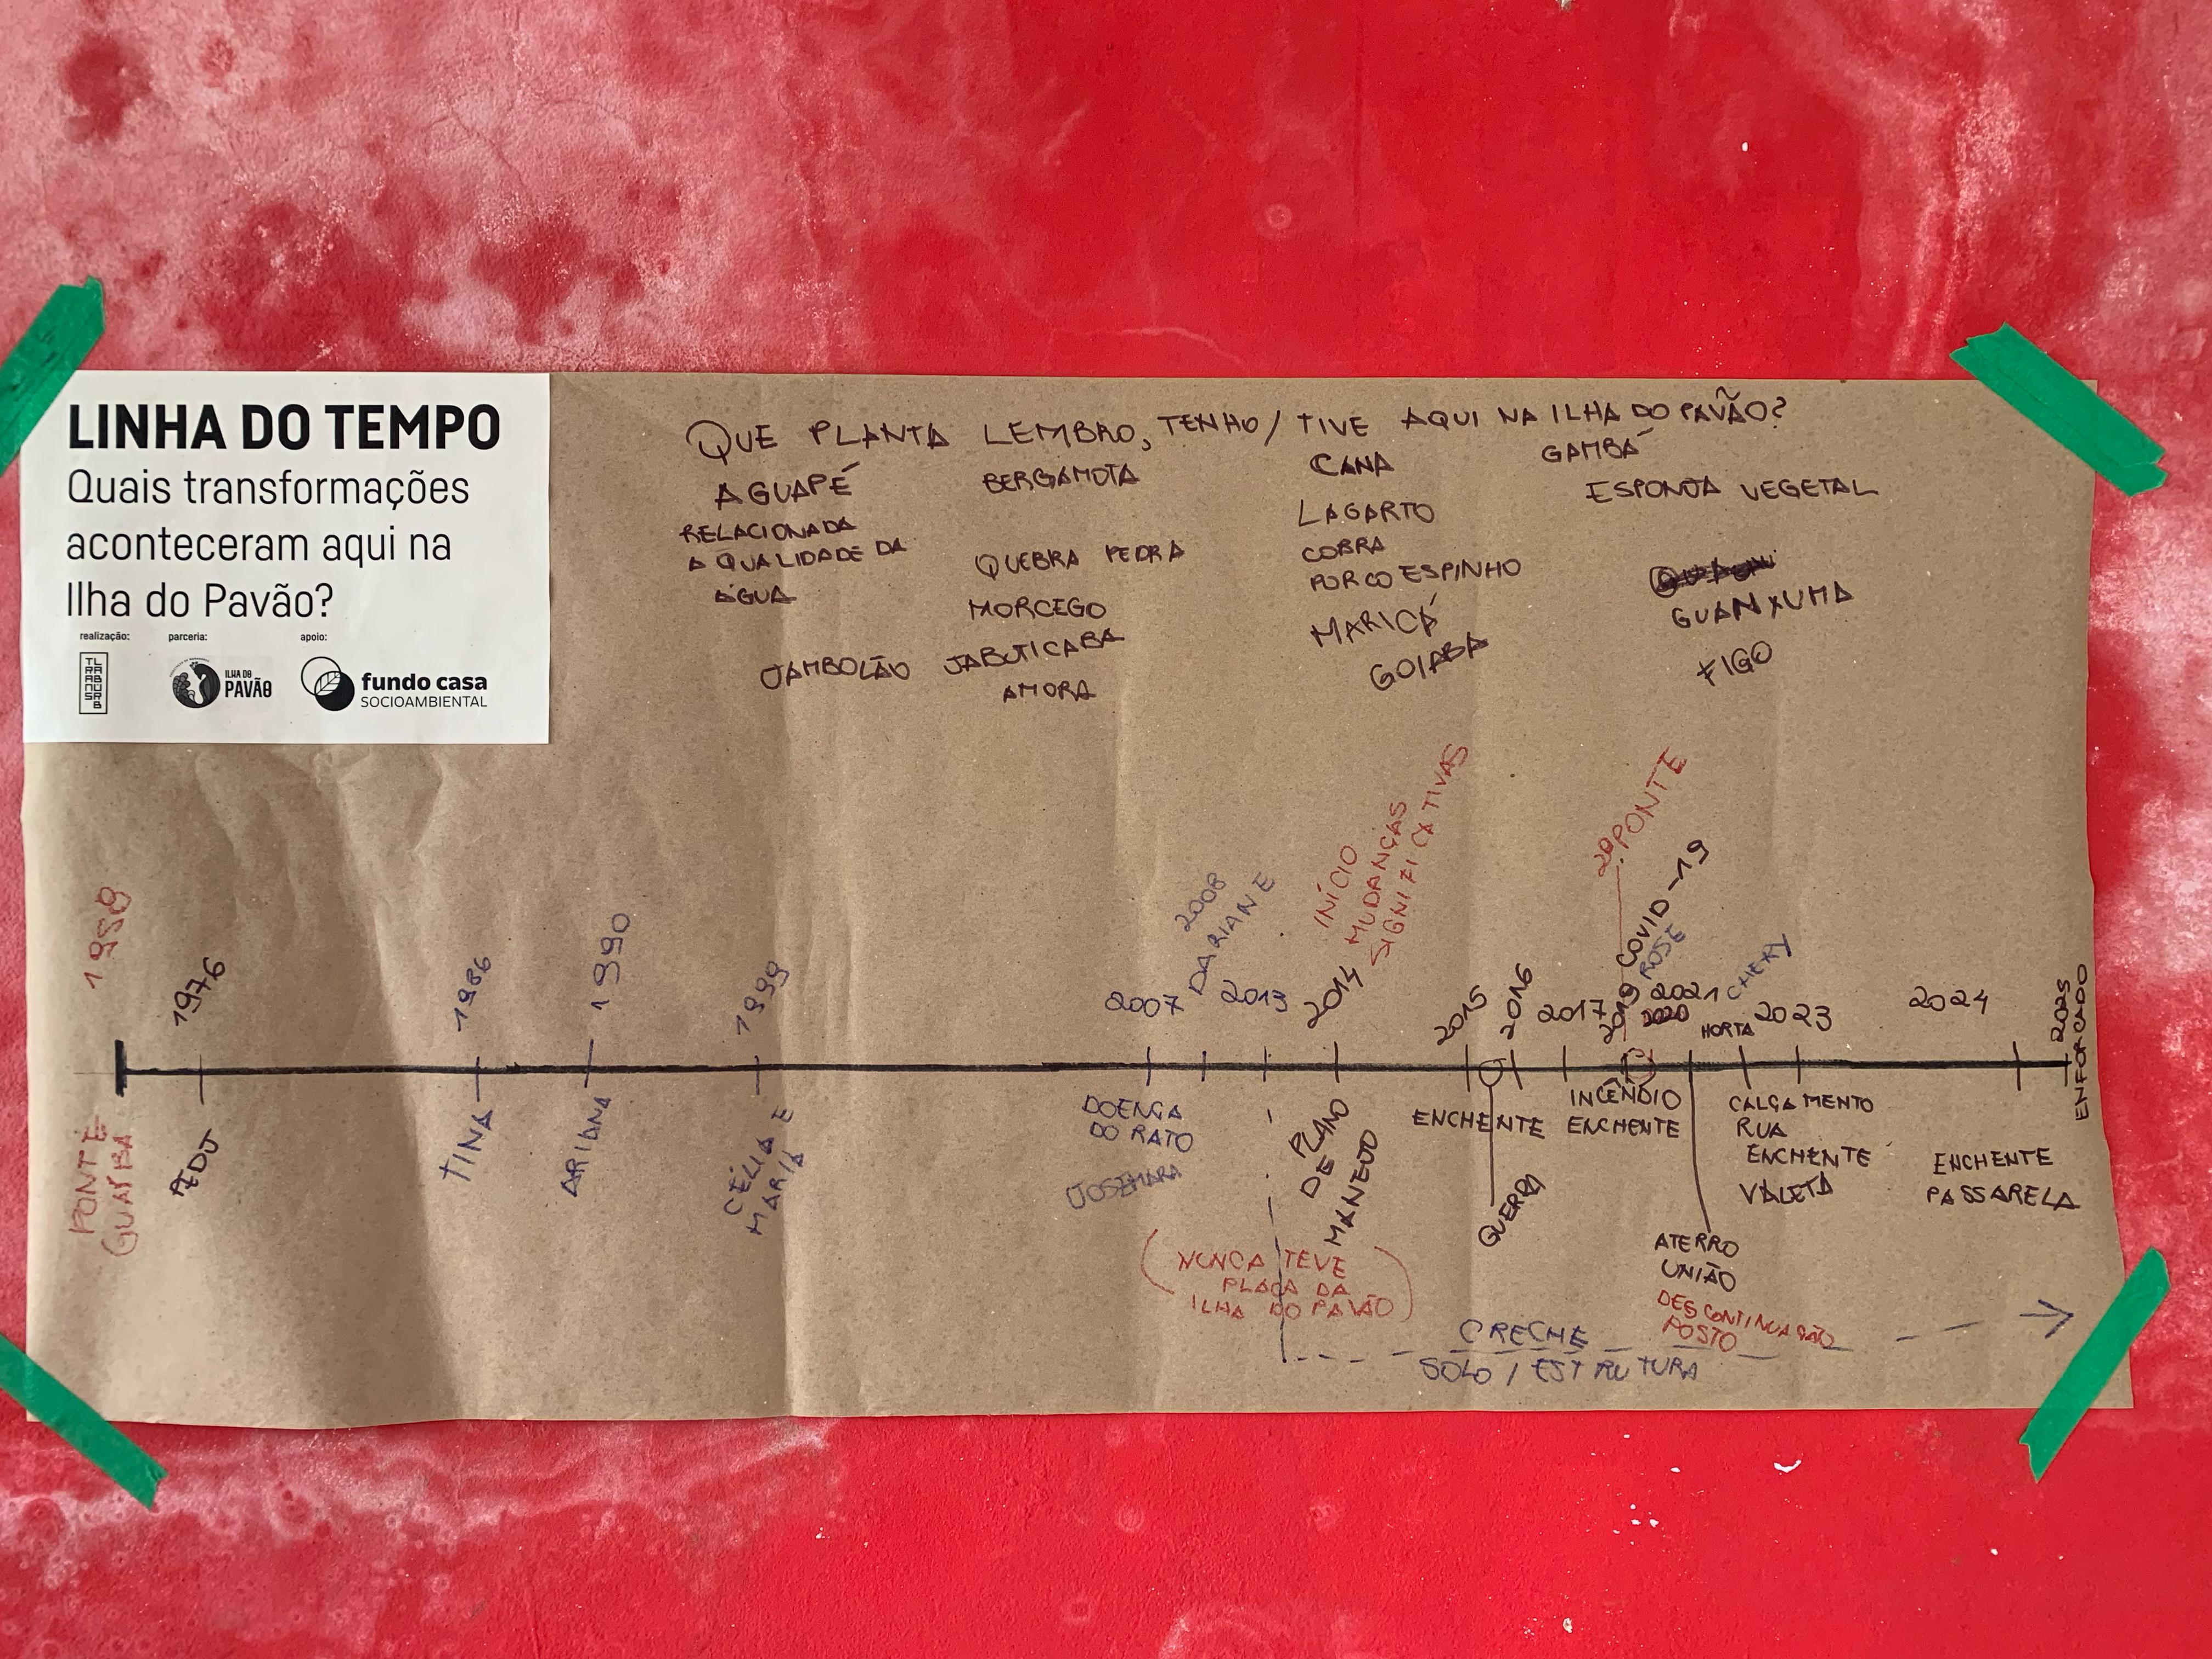 LINHA DO TEMPO
Quais transformações
aconteceram aqui na
Ilha do Pavão?
realização:
parceria:
apoio:
ILHA DO
PAVÃO
fundo casa
SOCIOAMBIENTAL
QUE PLANTA LEMBRO, TENHO / TIVE AQUI NA ILHA DO PAVÃO?
AGUAPÉ
RELACIONADA
A QUALIDADE DA
ÁGUA
JAMBOLÃO
BERGAMOTA
QUEBRA PEDRA
MORCEGO
JABUTICABA
AMORA
CANA
LAGARTO
COBRA
PORCO ESPINHO
MARICÁ
GOIABA
GAMBÁ
ESPONJA VEGETAL
GUANXUMA
FIGO
1958
PONTE
GUAÍBA
1976
EDU
1986
TINA
1990
ARIANA
1999
CÉLIA E
MARIA
2007
DOENÇA
DO RATO
JOSEMARA
2008
DARIANE
2013
2014
INÍCIO
MUDANÇAS
SIGNIFICATIVAS
PLANO
DE
MANEJO
(NUNCA TEVE
PLACA DA
ILHA DO PAVÃO)
2015
ENCHENTE
2016
GUERRA
2017
INCÊNDIO
ENCHENTE
2019
2ª PONTE
COVID-19
ROSE
2021
2020
ATERRO
UNIÃO
DESCONTINUAÇÃO
POSTO
CHERY
HORTA
2023
CALÇAMENTO
RUA
ENCHENTE
VALETA
2024
ENCHENTE
PASSARELA
2025
ENFORCADO
CRECHE
SOLO / ESTRUTURA